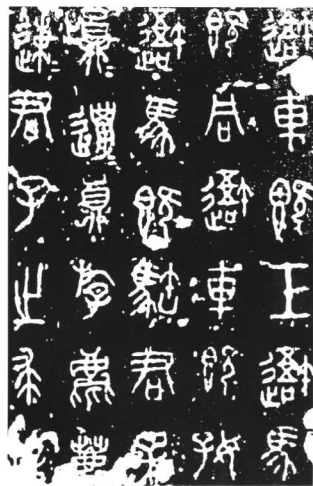 吾車既工吾馬
既同吾車既好
吾馬既駓君子
員邋員斿麀鹿
速君子之求